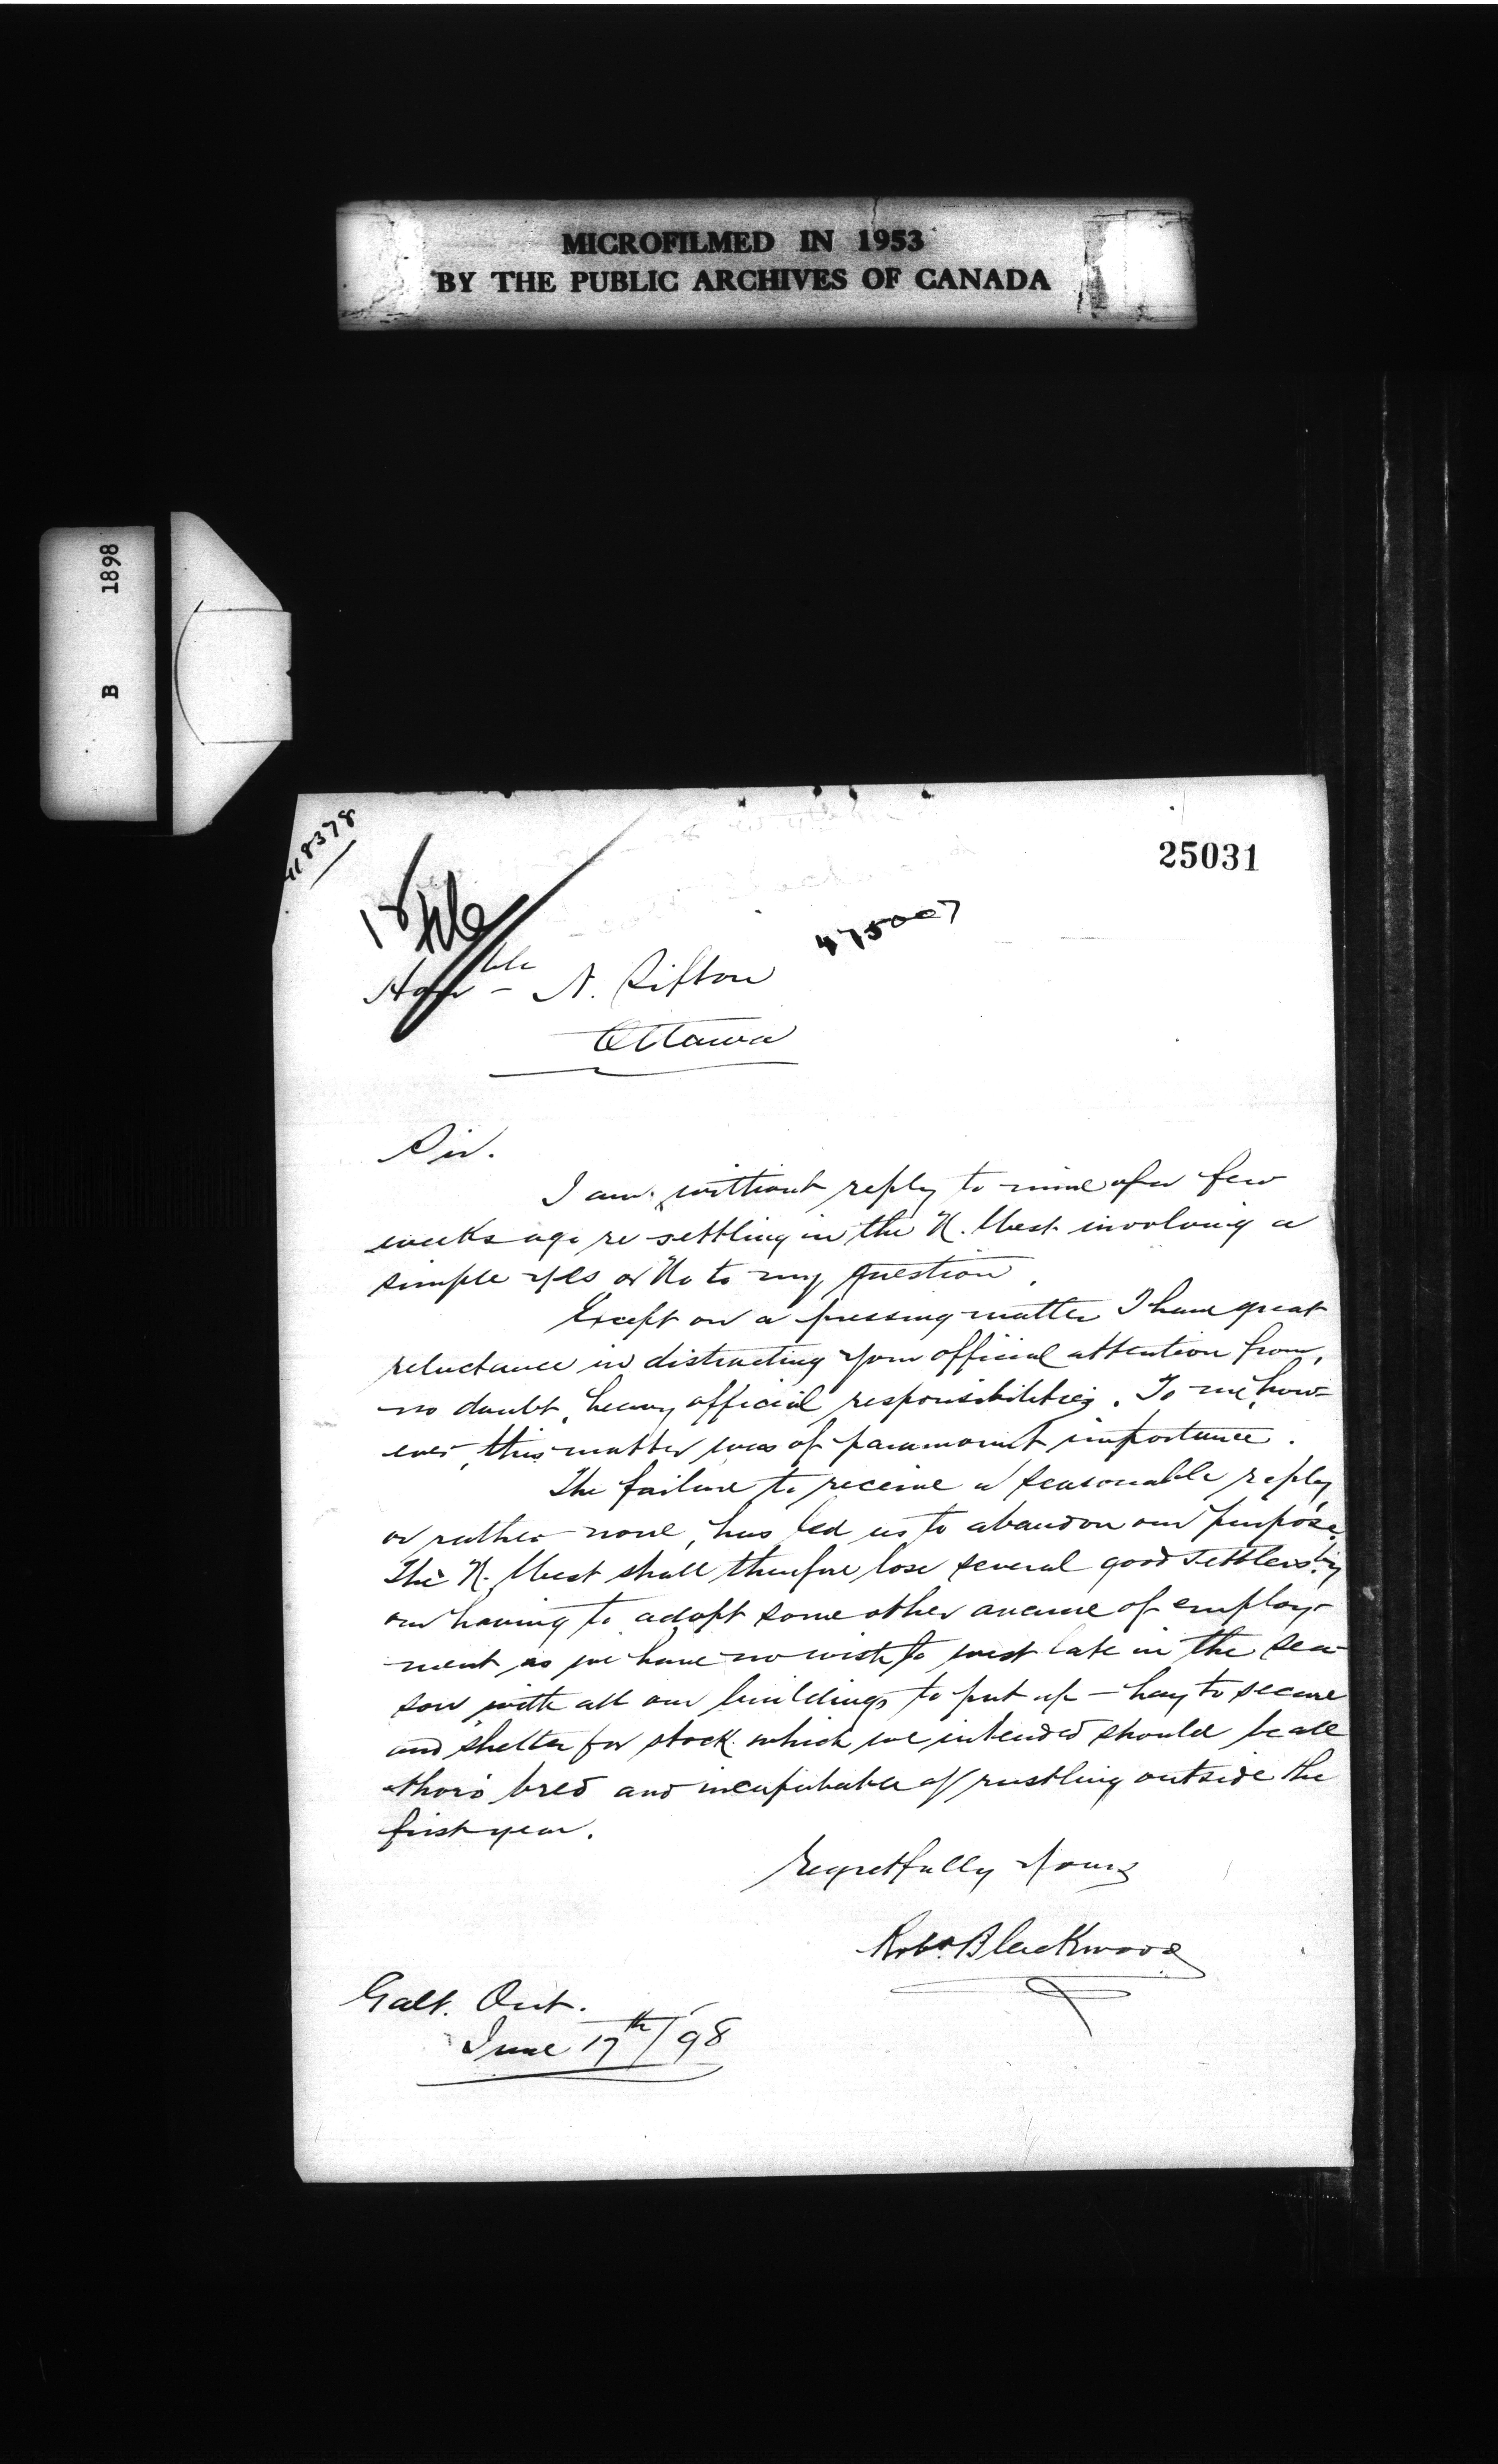 MICROFILMED IN 1953
BY THE PUBLIC ARCHIVES OF CANADA
B 1898
25031
475007
Honble - N. Sifton
Ottawa
Sir.
I am without reply to mine of a few
weeks ago re settling in the N. West involving a
simple yes or No to my question.
Except on a pressing matter I have great
reluctance in distracting your official attention from,
no doubt, heavy official responsibilities. To me, how-
ever, this matter was of paramount importance.
The failure to receive a seasonable reply
or rather none, has led us to abandon our purpose.
The N. West shall therefore lose several good settlers by
our having to adopt some other avenue of employ-
ment as we have no wish to west late in the sea-
son with all our buildings to put up - hay to secure
and shelter for stock which we intended should be all
thoro' bred and incapable of rustling outside the
first year.
Regretfully Yours
Robt. Blackwood
Galt. Ont.
June 17th/98